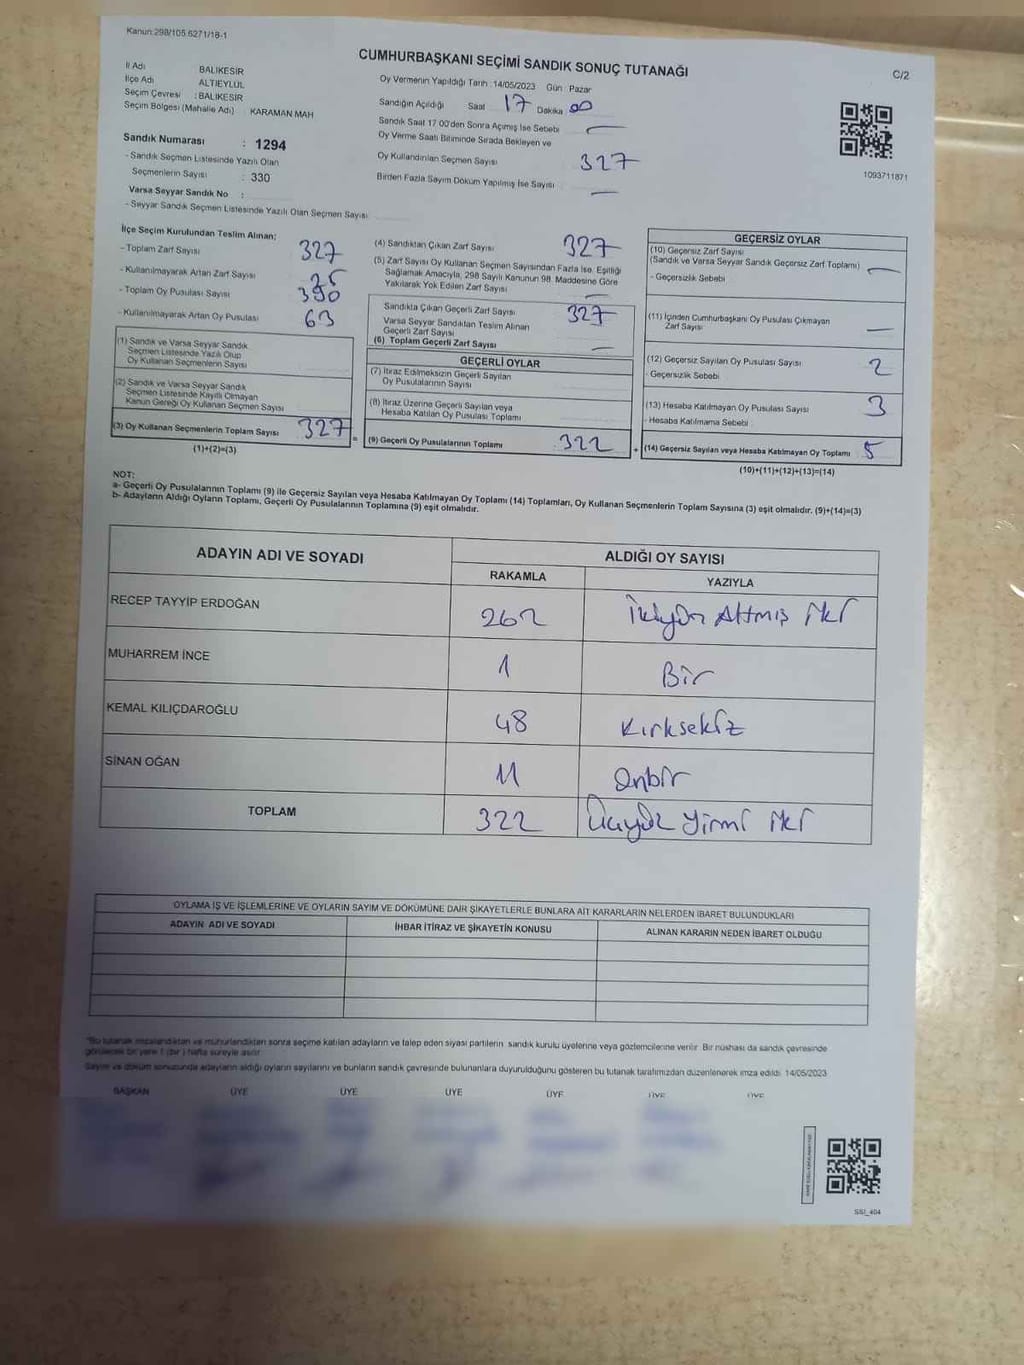 Kanun:298/105.6271/18-1
CUMHURBAŞKANI SEÇİMİ SANDIK SONUÇ TUTANAĞI
C/2
İl Adı BALIKESİR
İlçe Adı ALTIEYLÜL
Seçim Çevresi : BALIKESİR
Seçim Bölgesi (Mahalle Adı) KARAMAN MAH
Sandık Numarası : 1294
- Sandık Seçmen Listesinde Yazılı Olan
Seçmenlerin Sayısı : 330
Varsa Seyyar Sandık No :
- Seyyar Sandık Seçmen Listesinde Yazılı Olan Seçmen Sayısı
Oy Vermenin Yapıldığı Tarih :14/05/2023 Gün Pazar
Sandığın Açıldığı Saat 17 Dakika 00
Sandık Saat 17 00'den Sonra Açımış İse Sebebi —
Oy Verme Saati Bitiminde Sırada Bekleyen ve
Oy Kullandırılan Seçmen Sayısı 327
Birden Fazla Sayım Döküm Yapılmış İse Sayısı —
1093711871
İlçe Seçim Kurulundan Teslim Alınan:
- Toplam Zarf Sayısı 327
- Kullanılmayarak Artan Zarf Sayısı
- Toplam Oy Pusulası Sayısı 390
- Kullanılmayarak Artan Oy Pusulası 63
(1) Sandık ve Varsa Seyyar Sandık
Seçmen Listesinde Yazılı Olup
Oy Kullanan Seçmenlerin Sayısı
(2) Sandık ve Varsa Seyyar Sandık
Seçmen Listesinde Kayıtlı Olmayan
Kanun Gereği Oy Kullanan Seçmen Sayısı
(3) Oy Kullanan Seçmenlerin Toplam Sayısı 327
(1)+(2)=(3)
(4) Sandıktan Çıkan Zarf Sayısı 327
(5) Zarf Sayısı Oy Kullanan Seçmen Sayısından Fazla İse, Eşitliği
Sağlamak Amacıyla, 298 Sayılı Kanunun 98. Maddesine Göre
Yakılarak Yok Edilen Zarf Sayısı —
Sandıkta Çıkan Geçerli Zarf Sayısı 327
Varsa Seyyar Sandıktan Teslim Alınan
Geçerli Zarf Sayısı
(6) Toplam Geçerli Zarf Sayısı —
GEÇERLİ OYLAR
(7) İtiraz Edilmeksizin Geçerli Sayılan
Oy Pusulalarının Sayısı
(8) İtiraz Üzerine Geçerli Sayılan veya
Hesaba Katılan Oy Pusulası Toplamı
= (9) Geçerli Oy Pusulalarının Toplamı 322
GEÇERSİZ OYLAR
(10) Geçersiz Zarf Sayısı
(Sandık ve Varsa Seyyar Sandık Geçersiz Zarf Toplamı) —
- Geçersizlik Sebebi
(11) İçinden Cumhurbaşkanı Oy Pusulası Çıkmayan
Zarf Sayısı —
(12) Geçersiz Sayılan Oy Pusulası Sayısı 2
- Geçersizlik Sebebi
(13) Hesaba Katılmayan Oy Pusulası Sayısı 3
- Hesaba Katılmama Sebebi
+ (14) Geçersiz Sayılan veya Hesaba Katılmayan Oy Toplamı 5
(10)+(11)+(12)+(13)=(14)
NOT:
a- Geçerli Oy Pusulalarının Toplamı (9) ile Geçersiz Sayılan veya Hesaba Katılmayan Oy Toplamı (14) Toplamları, Oy Kullanan Seçmenlerin Toplam Sayısına (3) eşit olmalıdır. (9)+(14)=(3)
b- Adayların Aldığı Oyların Toplamı, Geçerli Oy Pusulalarının Toplamına (9) eşit olmalıdır.
ADAYIN ADI VE SOYADI ALDIĞI OY SAYISI
RAKAMLA YAZIYLA
RECEP TAYYİP ERDOĞAN 262 İkiyüz Altmış iki
MUHARREM İNCE 1 Bir
KEMAL KILIÇDAROĞLU 48 Kırksekiz
SİNAN OĞAN 11 Onbir
TOPLAM 322 Üçyüz yirmi iki
OYLAMA İŞ VE İŞLEMLERİNE VE OYLARIN SAYIM VE DÖKÜMÜNE DAİR ŞİKAYETLERLE BUNLARA AİT KARARLARIN NELERDEN İBARET BULUNDUKLARI
ADAYIN ADI VE SOYADI İHBAR İTİRAZ VE ŞİKAYETİN KONUSU ALINAN KARARIN NEDEN İBARET OLDUĞU
"Bu tutanak imzalandıktan ve mühürlendikten sonra seçime katılan adayların ve talep eden siyasi partilerin sandık kurulu üyelerine veya gözlemcilerine verilir. Bir nüshası da sandık çevresinde
görülecek bir yere 1 (bir ) hafta süreyle asılır
Sayım ve döküm sonucunda adayların aldığı oyların sayılarını ve bunların sandık çevresinde bulunanlara duyurulduğunu gösteren bu tutanak tarafımızdan düzenlenerek imza edildi. 14/05/2023
BAŞKAN ÜYE ÜYE ÜYE ÜYE ÜYE ÜYE
SSİ_404